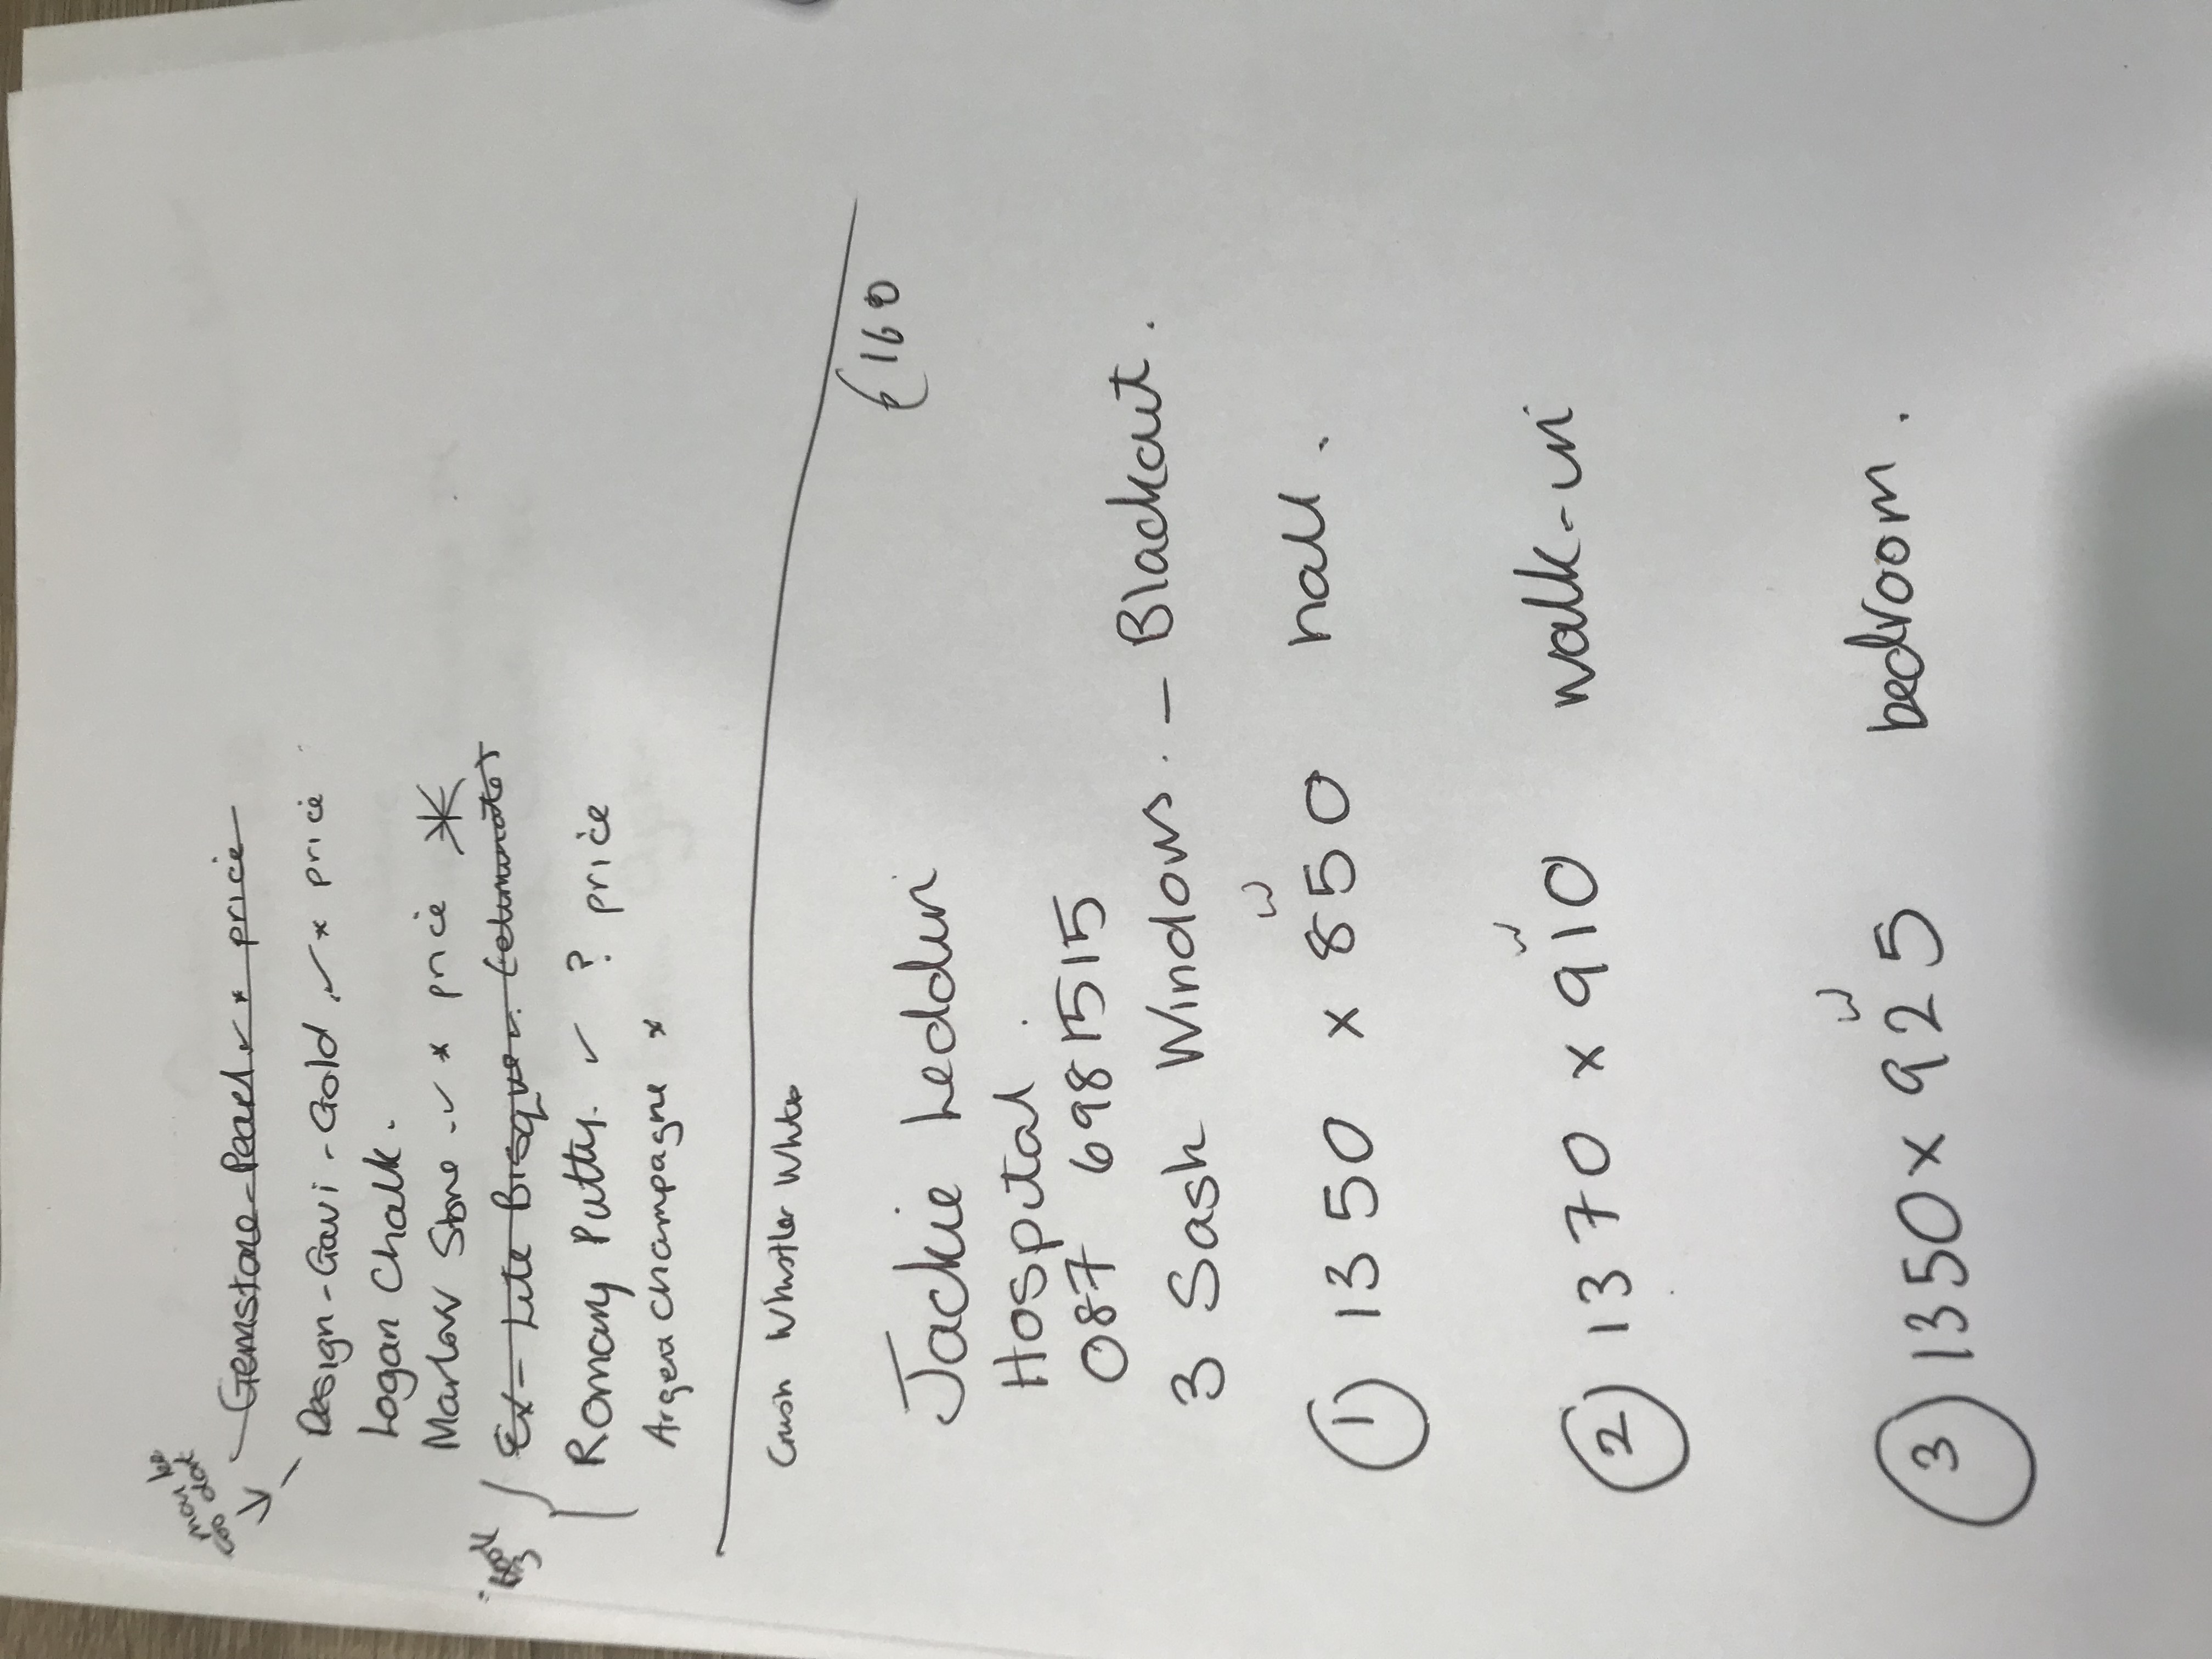 may be
too dark
Gemstone Pearl ✓ x price
Design - Gavi - Gold. ✓ x price
Logan Chalk.
Marlow Stone. ✓ x price *
Ex - Lite Bisque ✓. (eliminator)
Romany Putty. ✓ ? price
Argea Champagne x
Crush Whistler White
€160
Jackie Leddin
Hospital.
087 6981515
3 Sash Windows. - Blackout.
W
① 1350 x 850 hall.
W
② 1370 x 910 walk-in
W
③ 1350 x 925 bedroom.